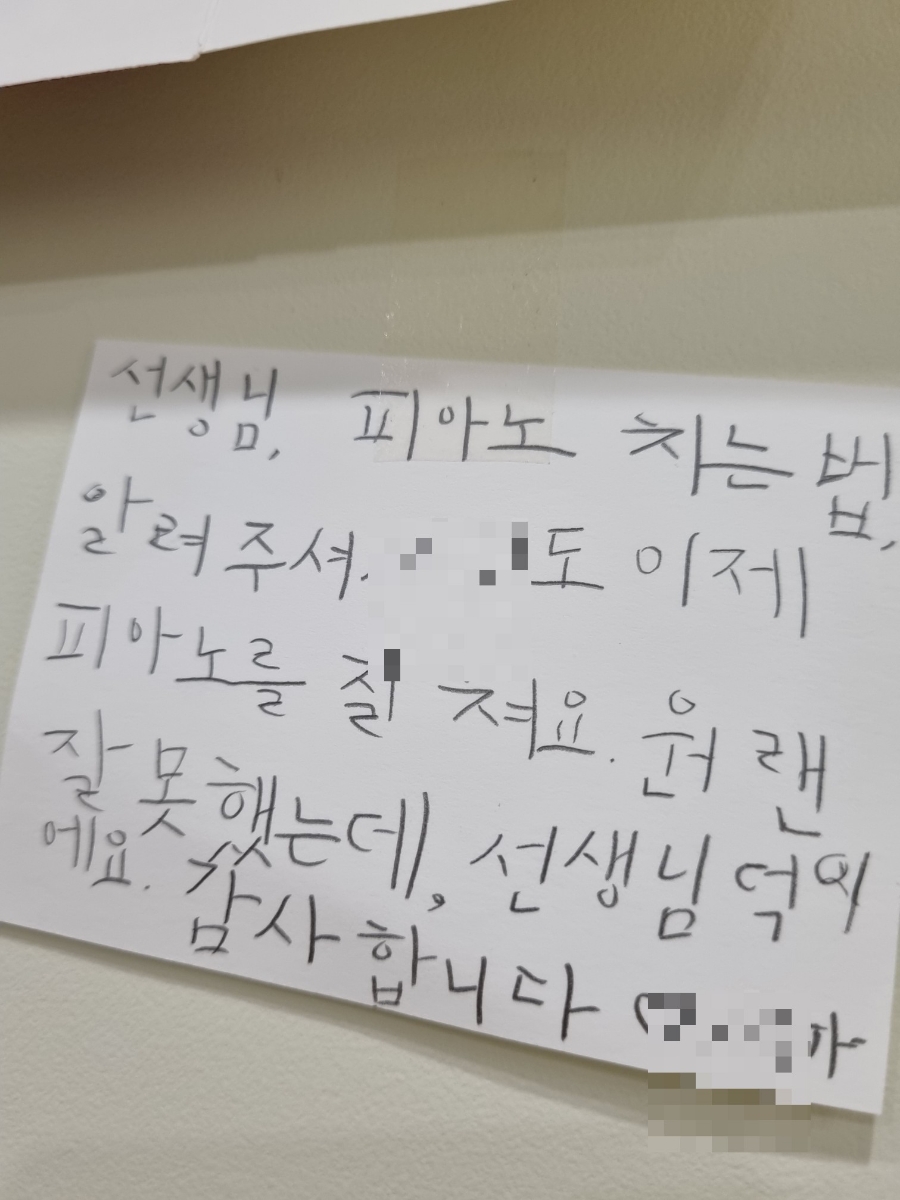 선생님, 피아노 치는 법,
알려주셔. 도 이제
피아노를 칠 져요. 원랜
잘 못했는데, 선생님 덕이
에요. 감사합니다